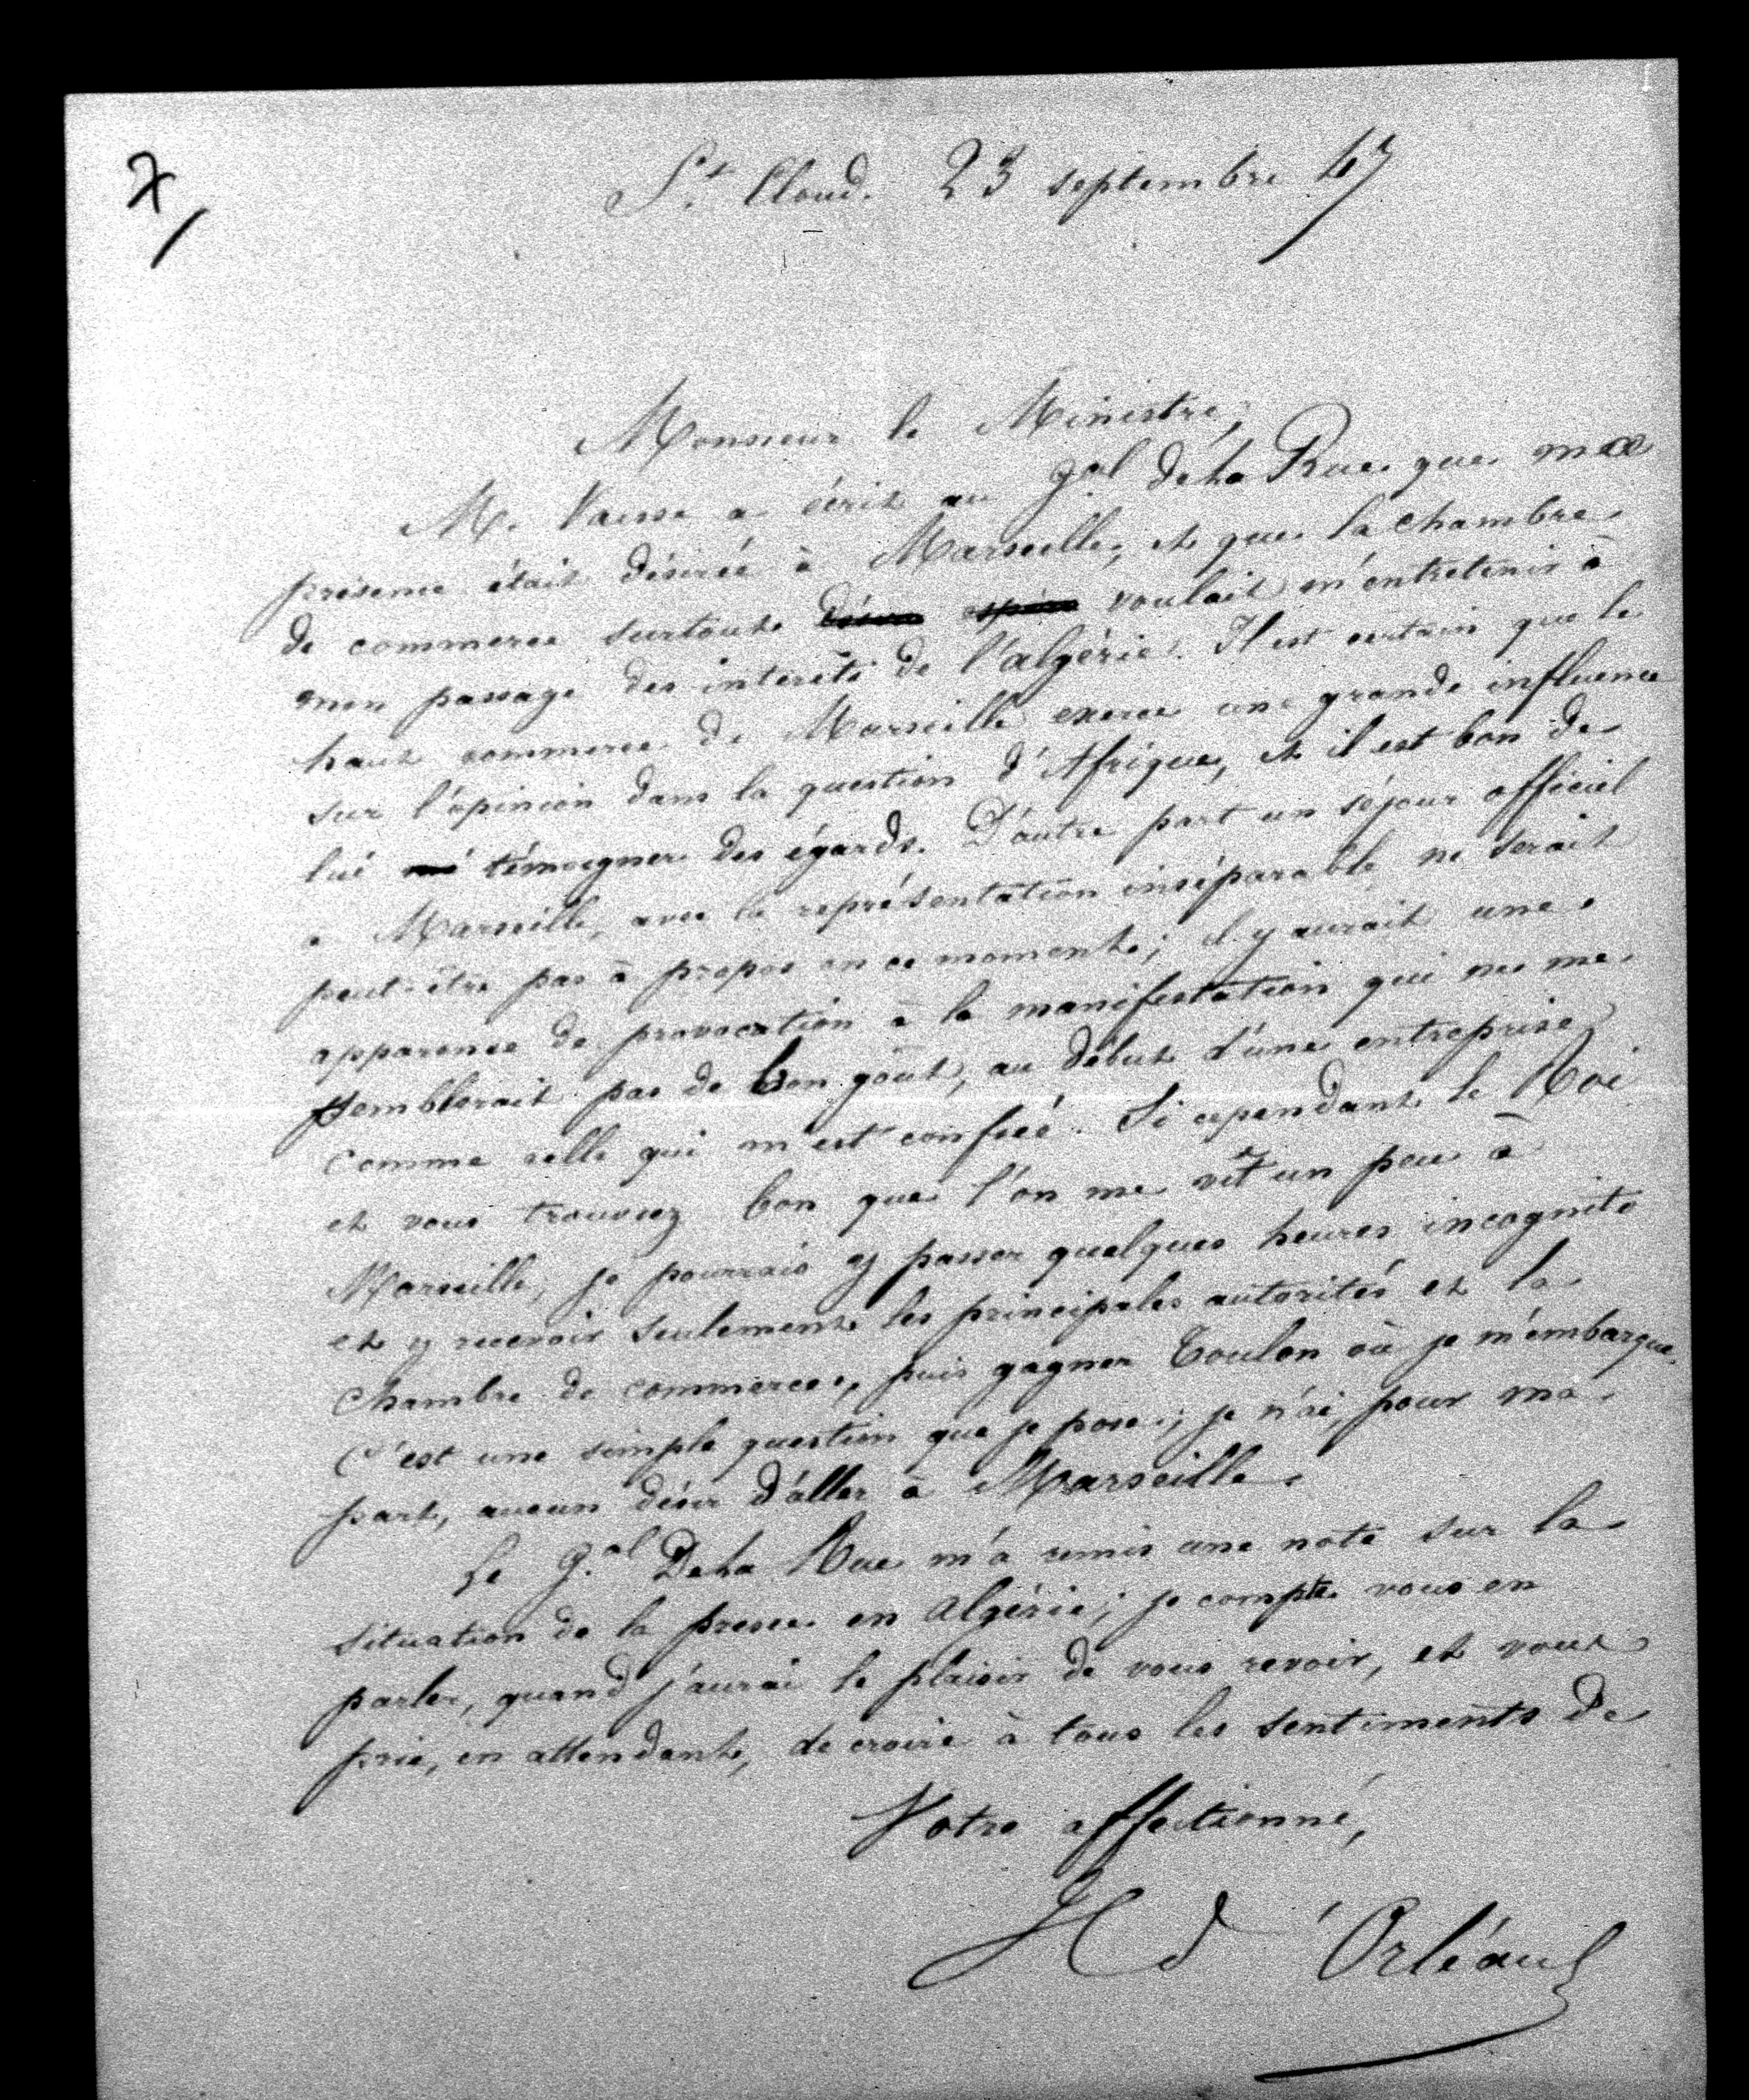 7
St Cloud. 23 septembre 47
Monsieur le Ministre,
M. Vaïsse a écrit au gal de La Rue que ma
présence était désirée à Marseille, et que la chambre
de commerce surtout voulait m'entretenir à
mon passage des intérêts de l'algérie. Il est certain que le
haut commerce de Marseille exerce une grande influence
sur l'opinion dans la question d'Afrique, et il est bon de
lui témoigner des égards. D'autre part un séjour officiel
à Marseille, avec la représentation inséparable ne serait
peut-être pas à propos en ce moment; il y aurait une
apparence de provocation à la manifestation qui ne me
semblerait pas de bon goût, au début d'une entreprise
comme celle qui m'est confiée. Si cependant le Roi
et vous trouviez bon que l'on me vît un peu à
Marseille, je pourrais y passer quelques heures incognito
et y recevoir seulement les principales autorités et la
Chambre de commerce, puis gagner Toulon où je m'embarque.
C'est une simple question que je pose; je n'ai, pour ma
part, aucun désir d'aller à Marseille.
Le g.al De La Rue m'a remis une note sur la
situation de la presse en Algérie; je compte vous en
parler, quand j'aurai le plaisir de vous revoir, et vous
prie, en attendant, de croire à tous les sentiments de
Votre affectionné,
H d'Orléans